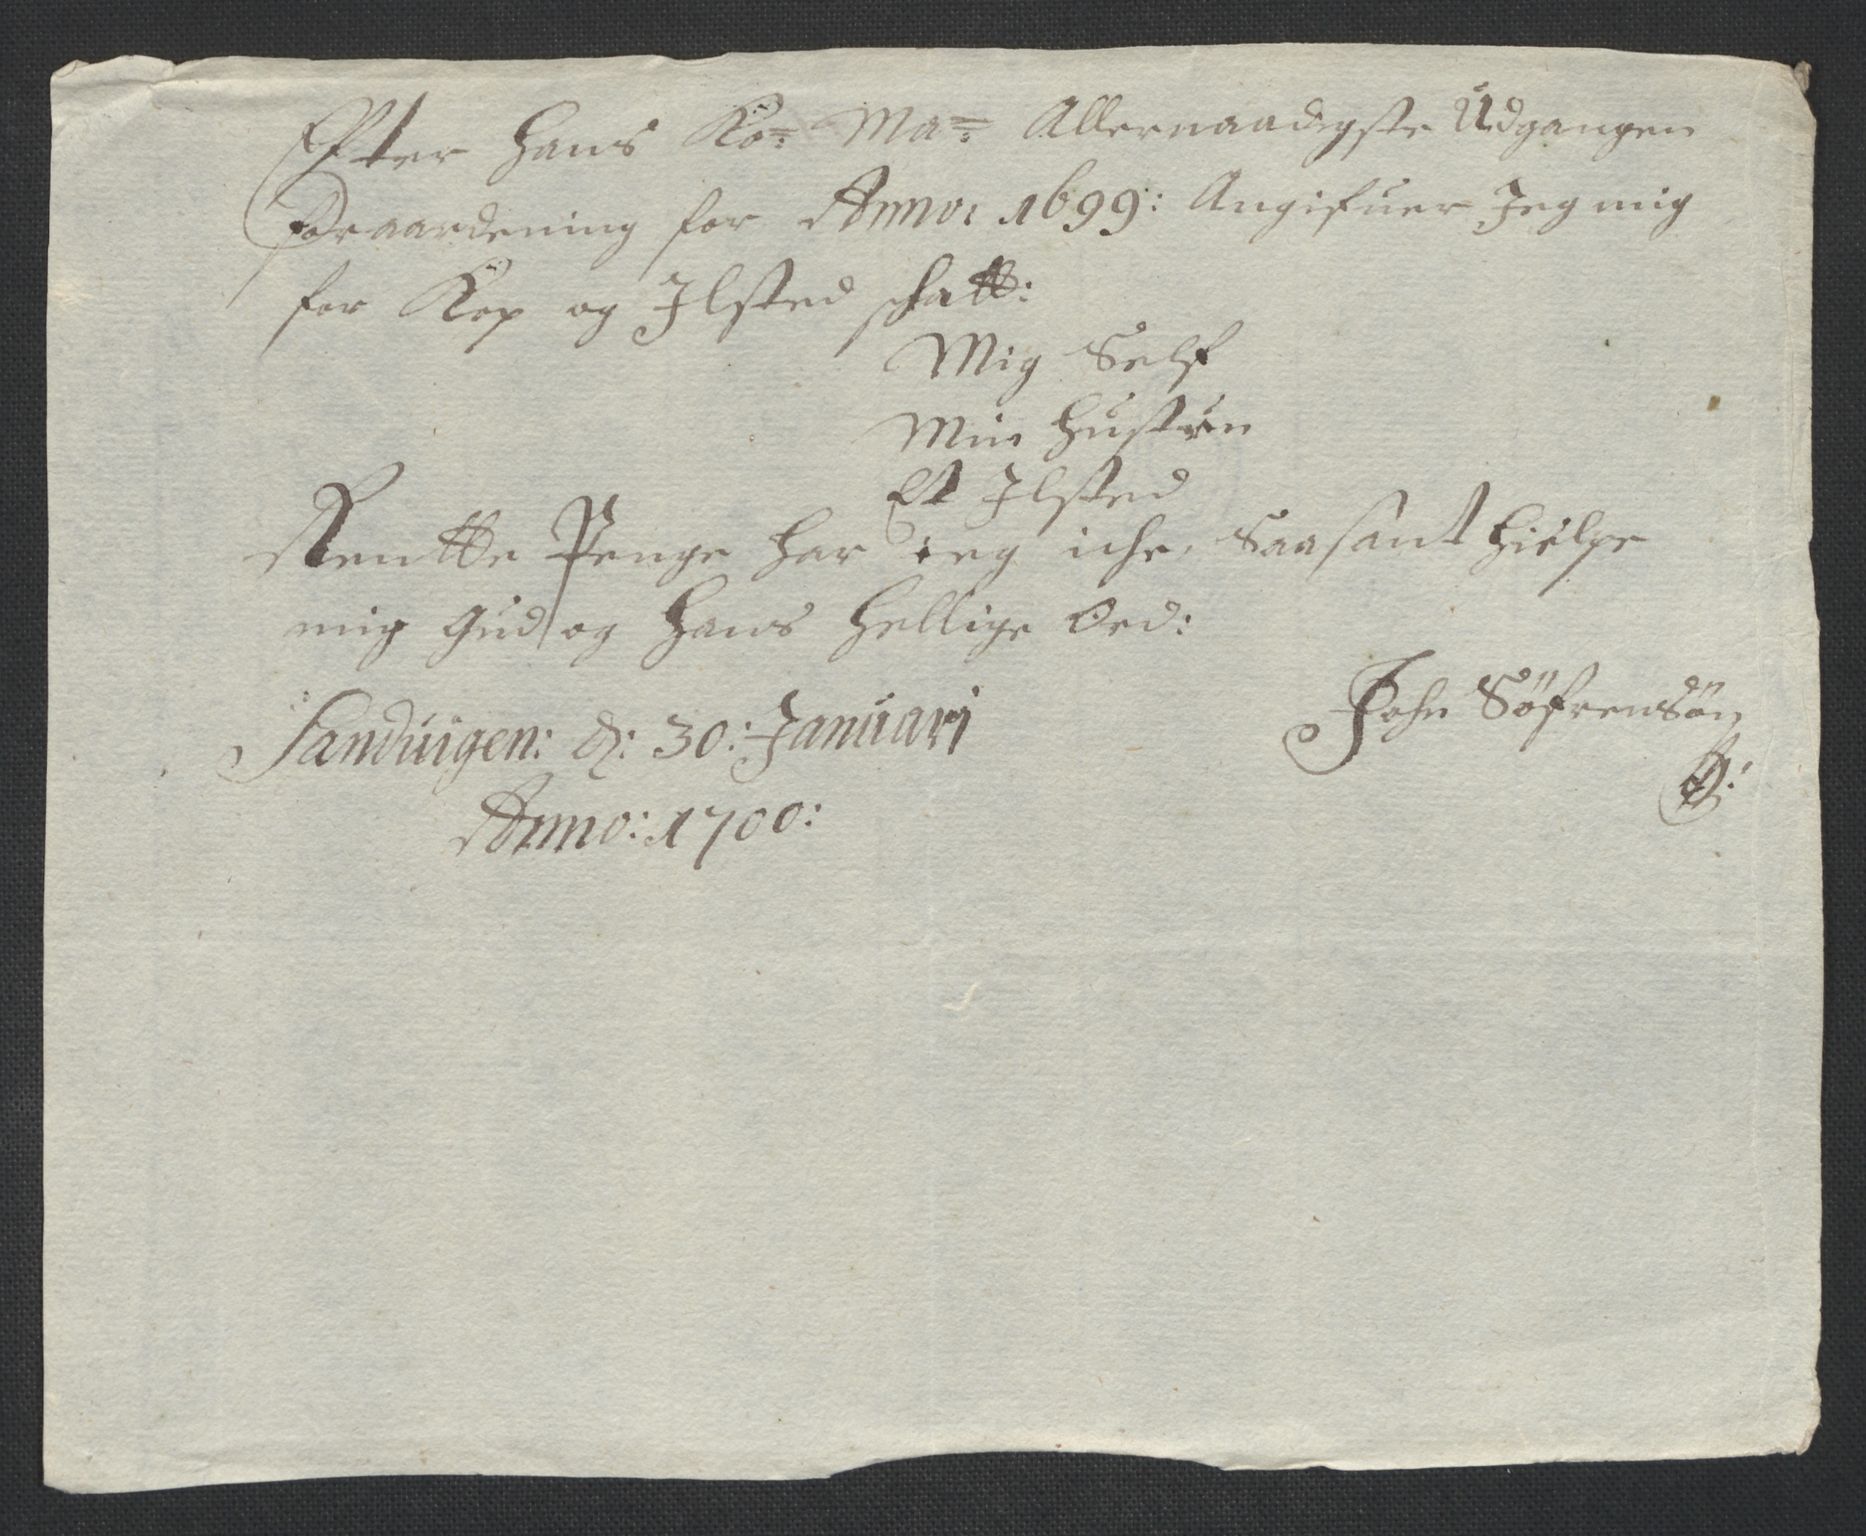 Efter Hans Ko: Ma: Allernaadigste Udgangen
Foraardening for Anno: 1699: Angifuer Jeg mig
for Kop og Ilsted schatt:
Mig Self
Min Hustrun
Et Ilsted
Rentte Penge har ieg iche, Saasant Hielpe
mig Gud og Hans Hellige Ord:
Sanduigen: d: 30: Januarj
John Söfrensön
Anno: 1700: